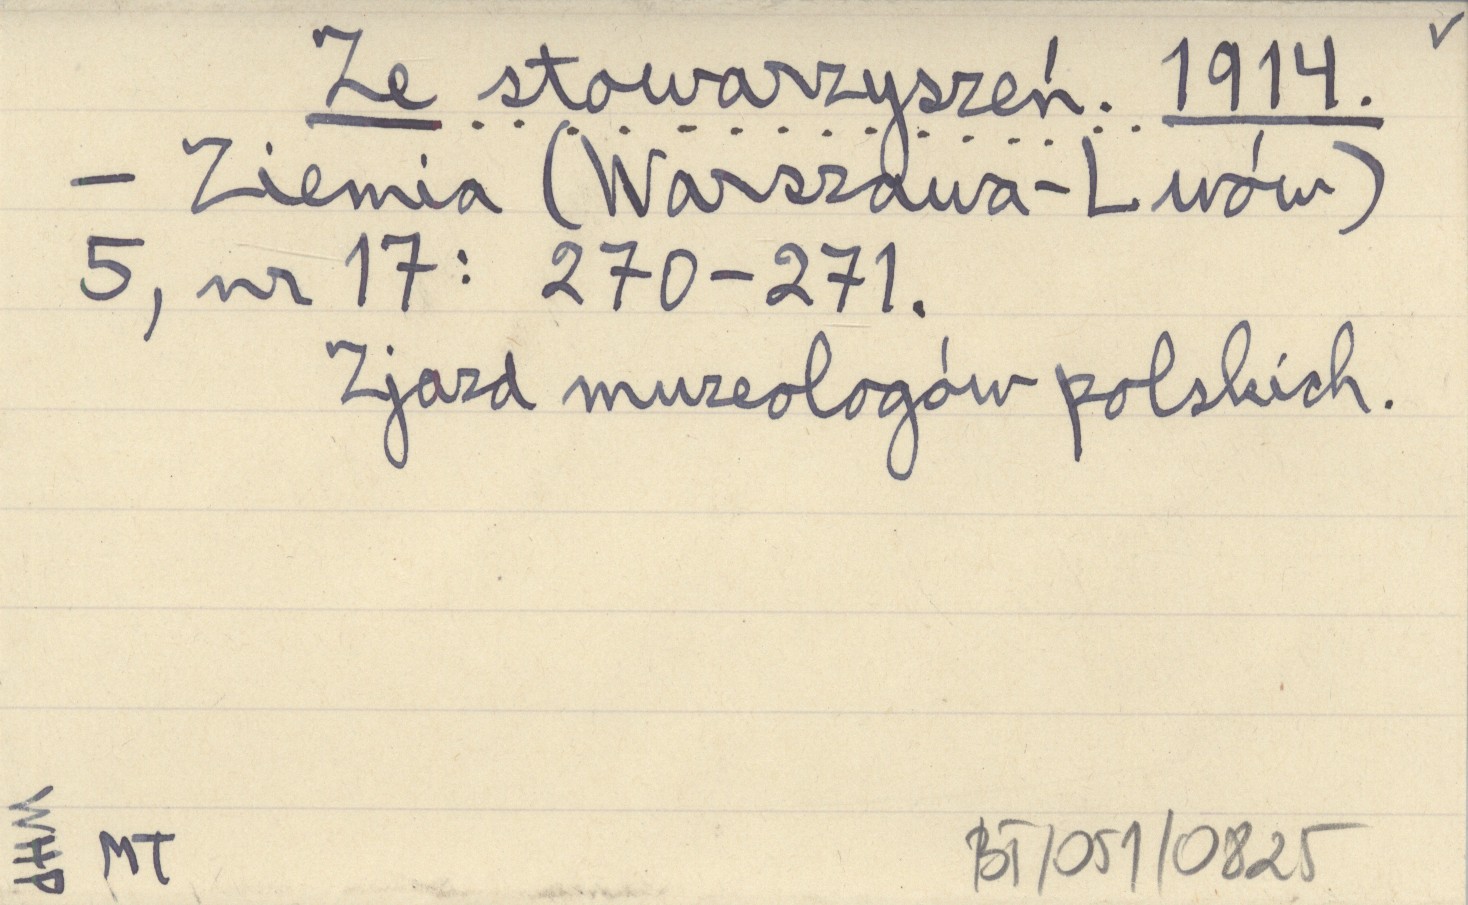 Ze stowarzyszeń. 1914.
– Ziemia (Warszawa-Lwów)
5, nr 17: 270-271.
Zjazd muzeologów polskich.
WHP
MT
BT/051/0825